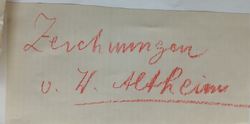 Zeichnungen
v. W. Altheim